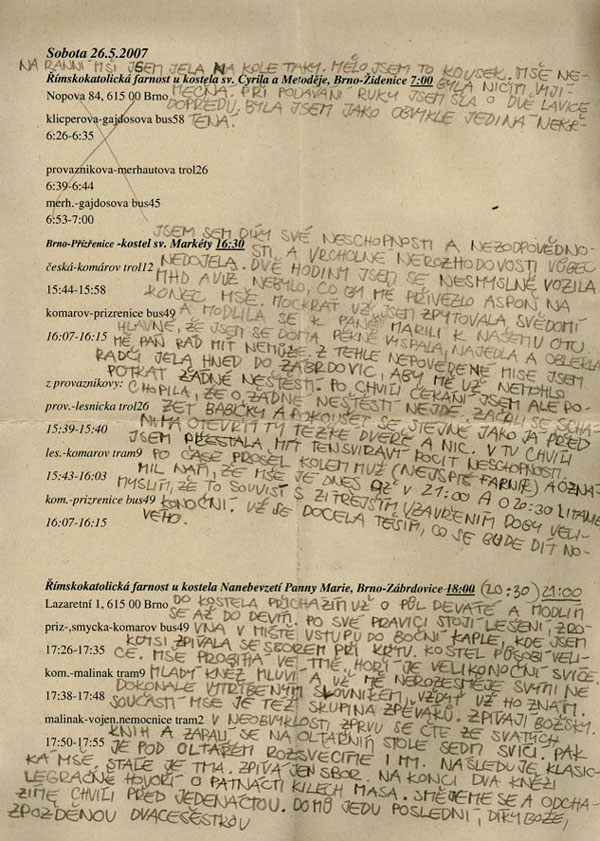 Sobota 26.5.2007
NA RANNÍ MŠI JSEM JELA NA KOLE TAKY. MĚLO JSEM TO KOUSEK. MŠE NE-
Římskokatolická farnost u kostela sv. Cyrila a Metoděje, Brno-Židenice 7:00 BYLA NIČÍM VÝJI-
Nopova 84, 615 00 Brno MEČNÁ. PŘI PODÁVÁNÍ RUKY JSEM ŠLA O DVĚ LAVICE
DOPŘEDU, BYLA JSEM JAKO OBVYKLE JEDINÁ NEKŘ-
klicperova-gajdosova bus58 TĚNÁ.
6:26-6:35
provaznikova-merhautova trol26
6:39-6:44
merh.-gajdosova bus45
6:53-7:00
JSEM SEM DÍKY SVÉ NESCHOPNOSTI A NEZODPOVĚDNO-
Brno-Přízřenice -kostel sv. Markéty 16:30 STI A VRCHOLNÉ NEROZHODOVOSTI VŮBEC
NEDOJELA. DVĚ HODINY JSEM SE NESMYSLNĚ VOZILA
česká-komárov trol12 MHD A VIZ NEBYLO, CO BY MĚ PŘIVEZLO ASPOŇ NA
15:44-15:58 KONEC MŠE. MOCKRÁT UŽ JSEM ZPYTOVALA SVĚDOMÍ
komarov-prizrenice bus49 A MODLILA SE K PÁNU MARILI K NAŠEMU OTU.
HLAVNĚ, ŽE JSEM SE DOMA PĚKNĚ VYSPALA, NAJEDLA A OBLÉKLA
16:07-16:15 MĚ PÁN RÁD MÍT NEMŮŽE. Z TÉHLE NEPOVEDENÉ MISE JSEM
RADĚJI JELA HNED DO ZÁBRDOVIC, ABY MĚ UŽ NEMOHLO
POTKAT ŽÁDNÉ NEŠTĚSTÍ. PO CHVÍLI ČEKÁNÍ JSEM ALE PO-
z provaznikovy: CHOPILA, ŽE O ŽÁDNÉ NEŠTĚSTÍ NEJDE. ZAČALI SE SCHÁ-
prov.-lesnicka trol26 ZET BABIČKY A POKOUŠET SE, STEJNĚ JAKO JÁ PŘED
15:39-15:40 NIMA OTEVŘÍT TY TĚŽKÉ DVEŘE A NIC. V TU CHVÍLI
JSEM PŘESTALA MÍT TEN SVÍRAVÝ POCIT NESCHOPNOSTI.
les.-komarov tram9 PO ČASE PROŠEL KOLEM MUŽ (NEJSPÍŠ FARNÍK) A OZNÁ-
MIL NÁM, ŽE MŠE JE DNES AŽ V 21:00 A O 20:30 LITANIE
15:43-16:03 MYSLÍM, ŽE TO SOUVISÍ S ZÍTŘEJŠÍM UZAVŘENÍM DOBY VELI-
kom.-prizrenice bus49 KONOČNÍ. UŽ SE DOCELA TĚŠÍM, CO SE BUDE DÍT NO-
16:07-16:15 VÉHO.
Římskokatolická farnost u kostela Nanebevzetí Panny Marie, Brno-Zábrdovice 18:00 (20:30) 21:00
Lazaretní 1, 615 00 Brno DO KOSTELA PŘICHÁZÍM UŽ O PŮL DEVÁTÉ A MODLÍM
SE AŽ DO DEVÍTI. PO SVÉ PRAVICI STOJÍ LEŠENÍ, ZRO-
priz-,smycka-komarov bus49 VNA V MÍSTĚ VSTUPU DO BOČNÍ KAPLE, KDE JSEM
17:26-17:35 KDYSI ZPÍVALA SE SBOREM PŘI KRTU. KOSTEL PŮSOBÍ VELI-
CE. MŠE PROBÍHÁ VE TMĚ, HOŘÍ JE VELIKONOČNÍ SVÍCE.
kom.-malinak tram9 MLADÝ KNĚZ MLUVÍ A UŽ MĚ NEROZESMĚJE SVÝMI NE
DOKONALE VYTŘÍBENÝM SLOVNÍKEM, VŽDYŤ UŽ HO ZNÁM.
17:38-17:48 SOUČÁSTÍ MŠE JE TÉŽ SKUPINA ZPĚVÁKŮ. ZPÍVAJÍ BOŽSKY.
malinak-vojen.nemocnice tram2 V NEOBVYKLOSTI ZPRVU SE ČTE ZE SVATÝCH
KNIH A ZAPALÍ SE NA OLTÁŘNÍM STOLE SEDM SVÍCÍ, PAK
17:50-17:55 JE POD OLTÁŘEM ROZSVĚCÍME I MY. NÁSLEDUJE KLASIC-
KÁ MŠE. STÁLE JE TMA. ZPÍVÁ JEN SBOR. NA KONCI DVA KNĚZÍ
LEGRAČNĚ HOVOŘÍ O PATNÁCTI KILECH MASA. SMĚJEME SE A ODCHÁ-
ZÍME CHVÍLI PŘED JEDENÁCTOU. DOMŮ JEDU POSLEDNÍ, DÍKY BOŽE,
ZPOŽDĚNOU DVACESĚSTKOU